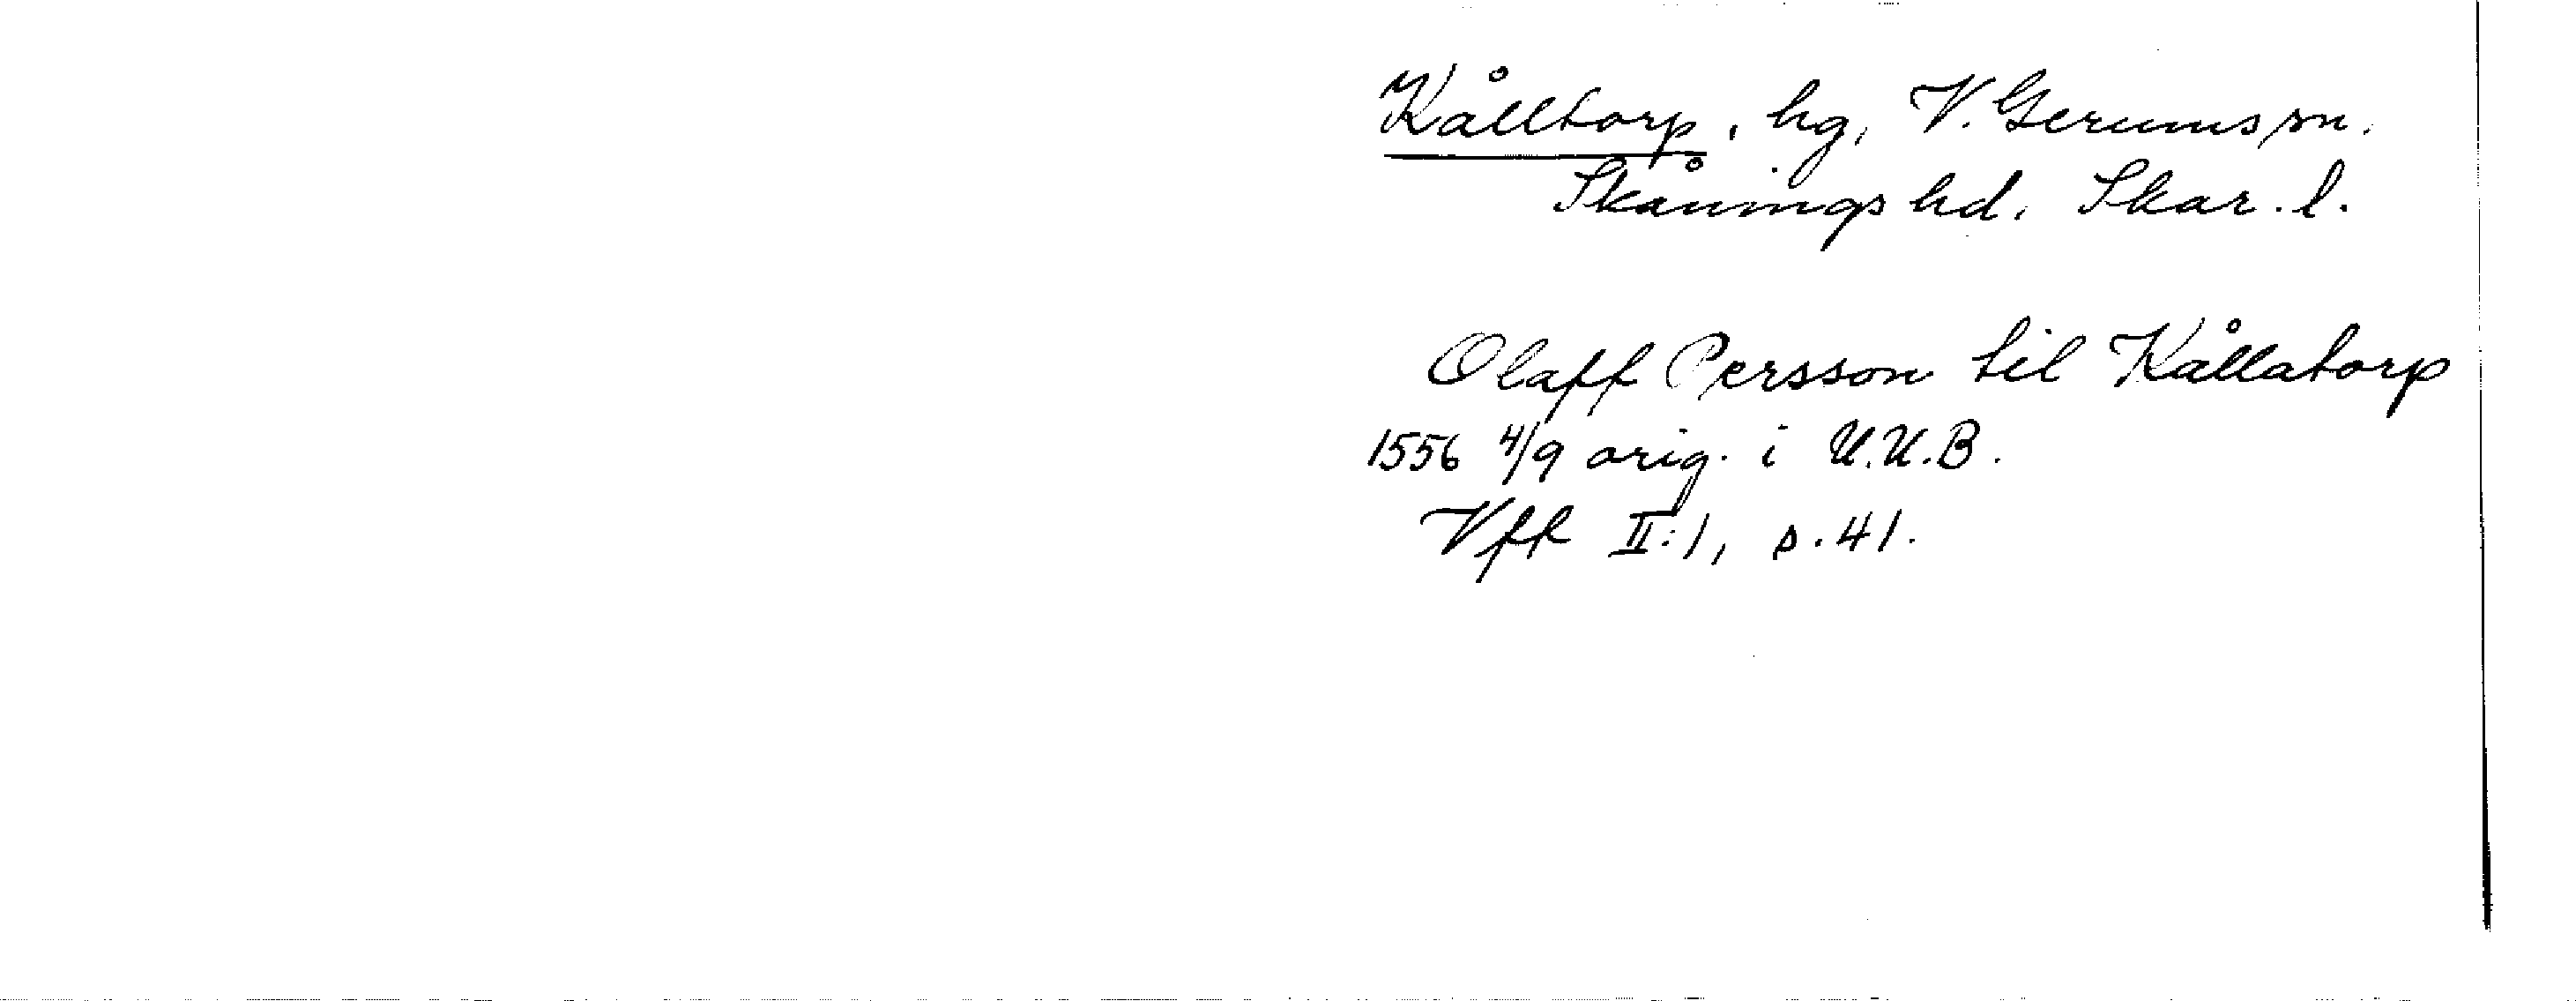 Kålltorp, hg, V. Gerums sn.
Skånings hd. Skar. l.
Olaff Persson til Kållatorp
1556 4/9 orig. i U.U.B.
Vff II:1, s. 41.